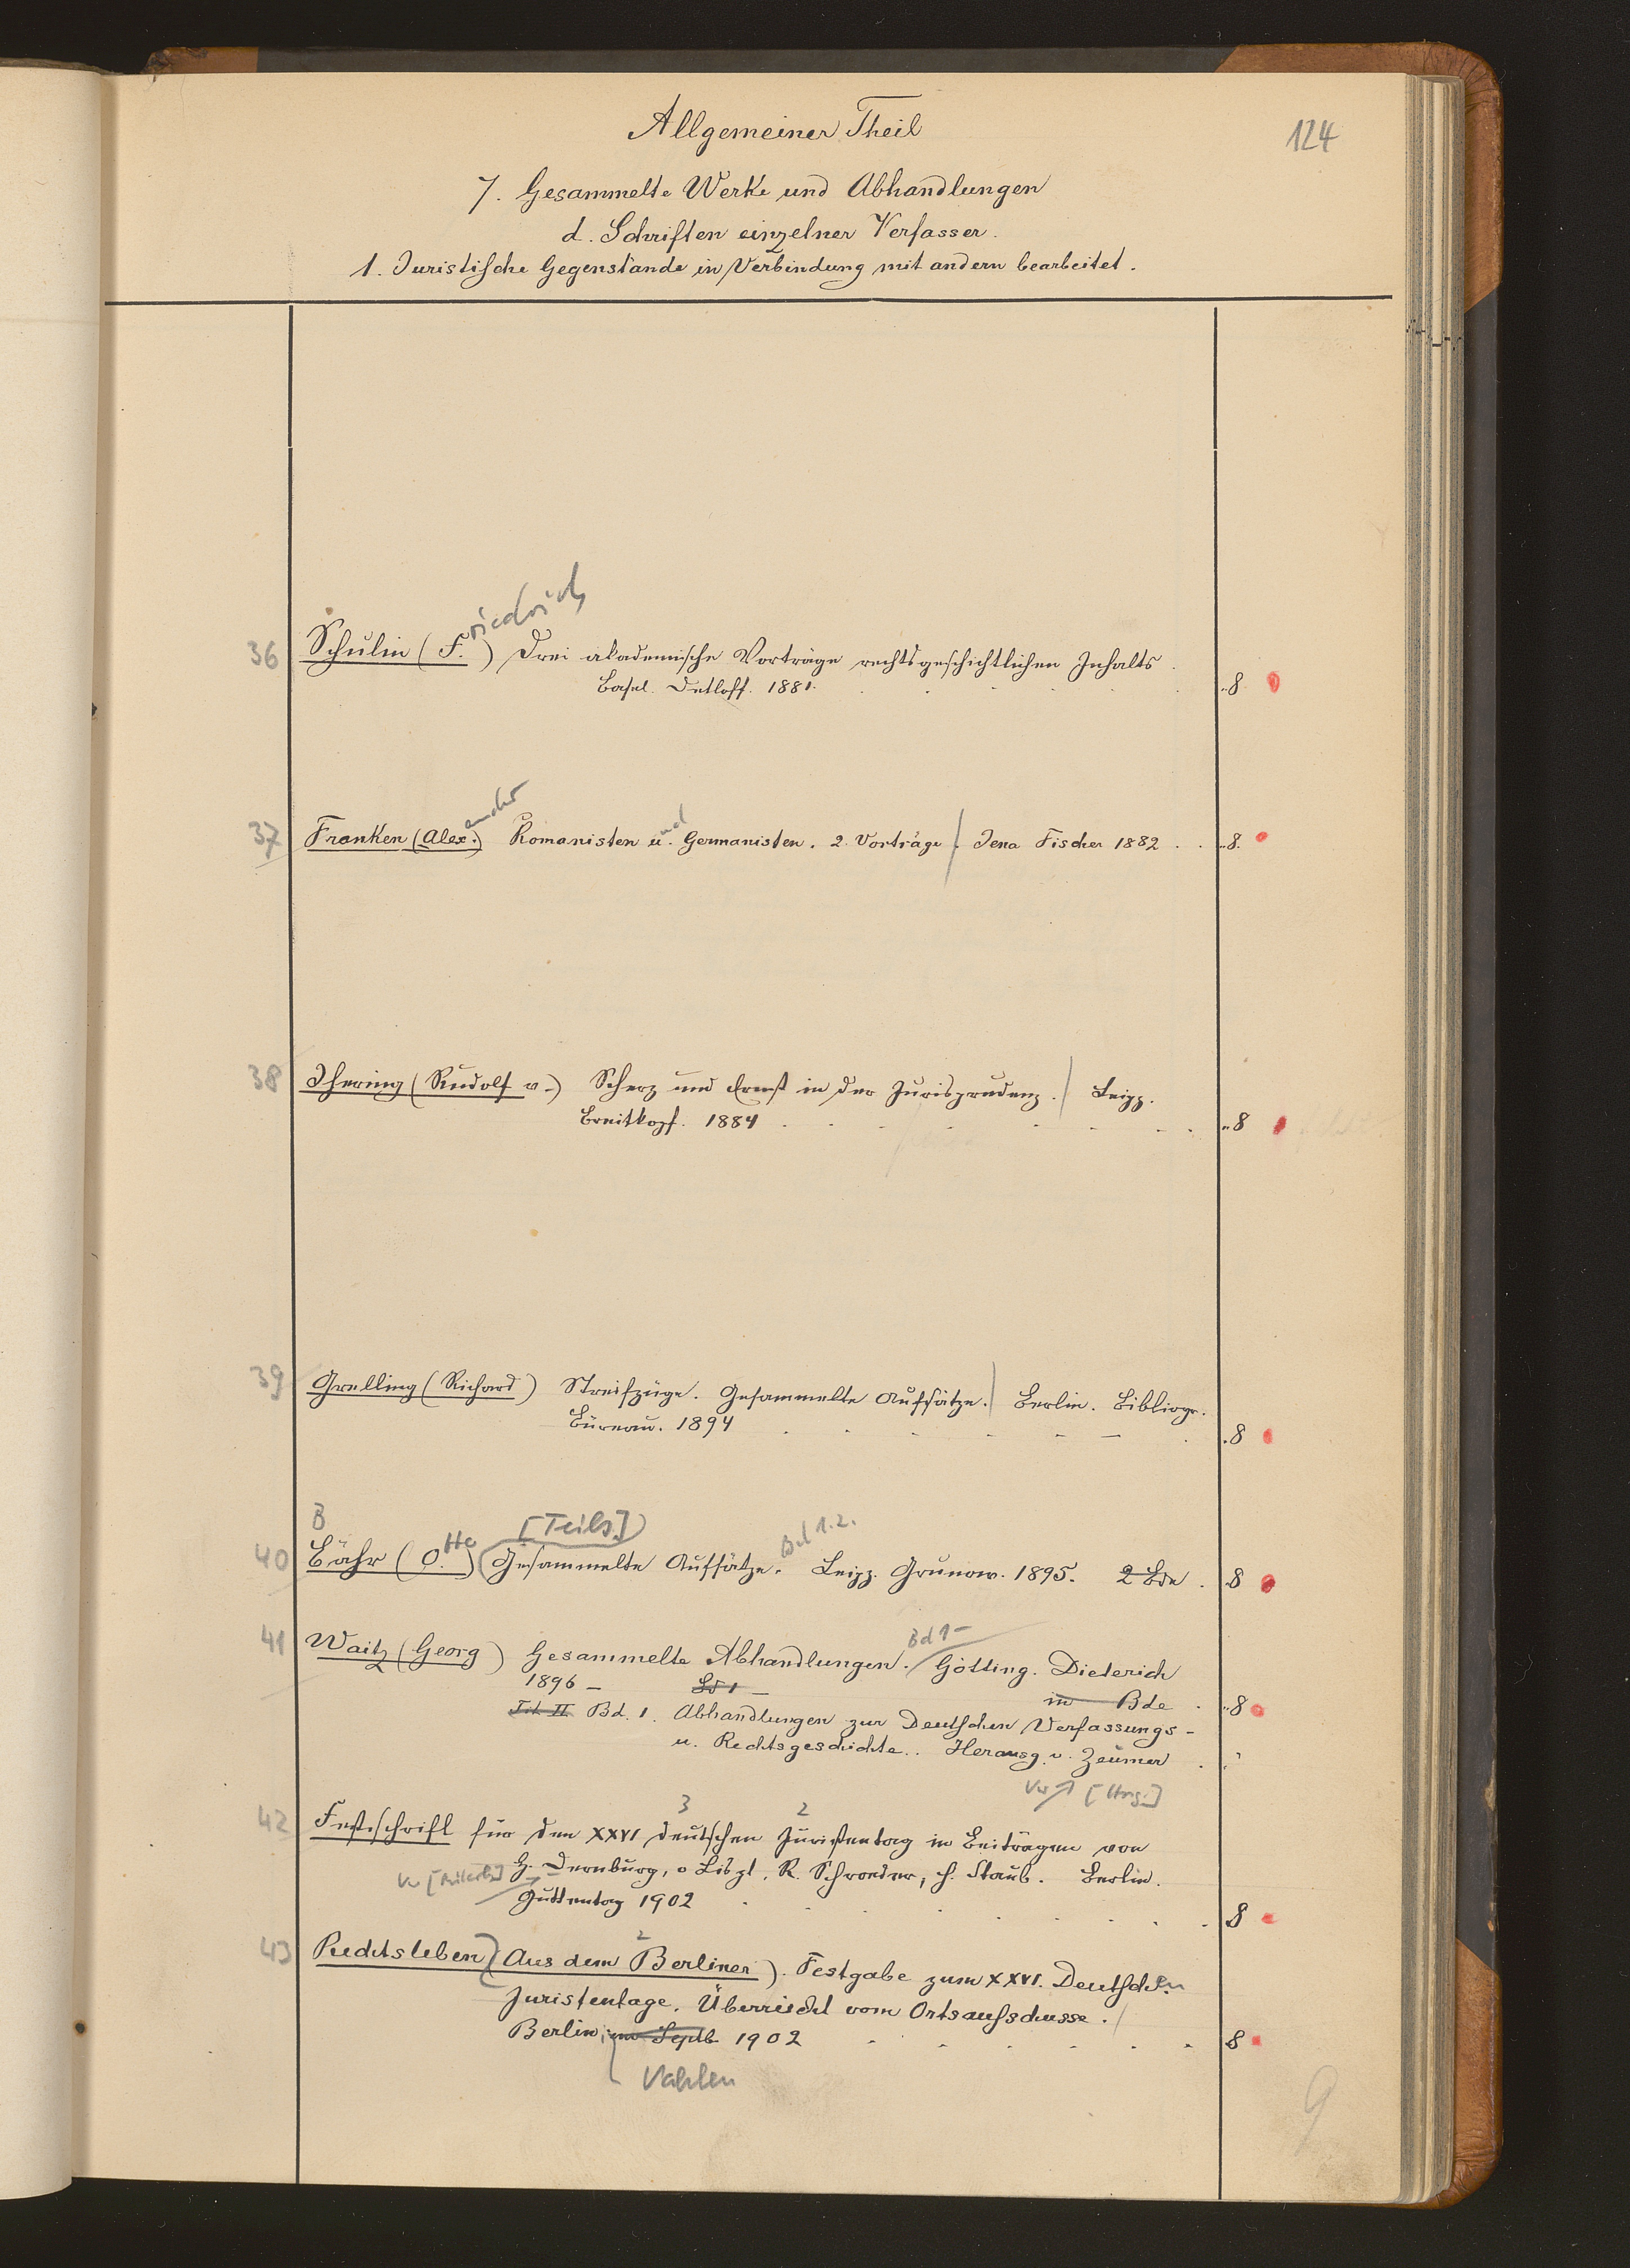 Allgemeiner Theil
124
7. Gesammelte Werke und Abhandlungen
d. Schriften einzelner Verfasser.
1. Juristische Gegenstände in Verbindung mit andern bearbeitet.
riedrich
36 Schulin (F.) Drei akademische Vorträge rechtsgeschichtlichen Inhalts.
Basel. Detloff. 1881. 8
ander
37 Franken (Alex.) Romanisten u. Germanisten. 2 Vorträge. Jena Fischer 1882 8.
38 Jhering (Rudolf v.) Scherz und Ernst in der Jurisprudenz. Leipz.
Breitkopf. 1884 8
39 Grelling (Richard) Streifzüge. Gesammelte Aufsätze. Berlin. Bibliogr.
Büreau. 1894 8
B [Teils] Bd 1.2.
40 Bähr (O.tto) Gesammelte Aufsätze. Leipz. Grunow. 1895. 2 Bde. 8
Bd 1-
41 Waitz (Georg) Gesammelte Abhandlungen. Götting. Dieterich
1896 – Bd 1 – in Bde. 8
Tit II Bd. 1. Abhandlungen zur Deutschen Verfassungs-
u. Rechtsgeschichte.. Herausg. v. Zeumer
[Hrsg.]
3 2
42 Festschrift für den XXVI deutschen Juristentag in Beiträgen von
H. Dernburg, v Liszt, R. Schroeder, H. Staub. Berlin.
Guttentag 1902 8
2
43 Rechtsleben (Aus dem Berliner). Festgabe zum XXVI. Deutschen
Juristentage. Überreicht vom Ortsausschusse.
Berlin, im Septb. 1902 8
Vahlen
9